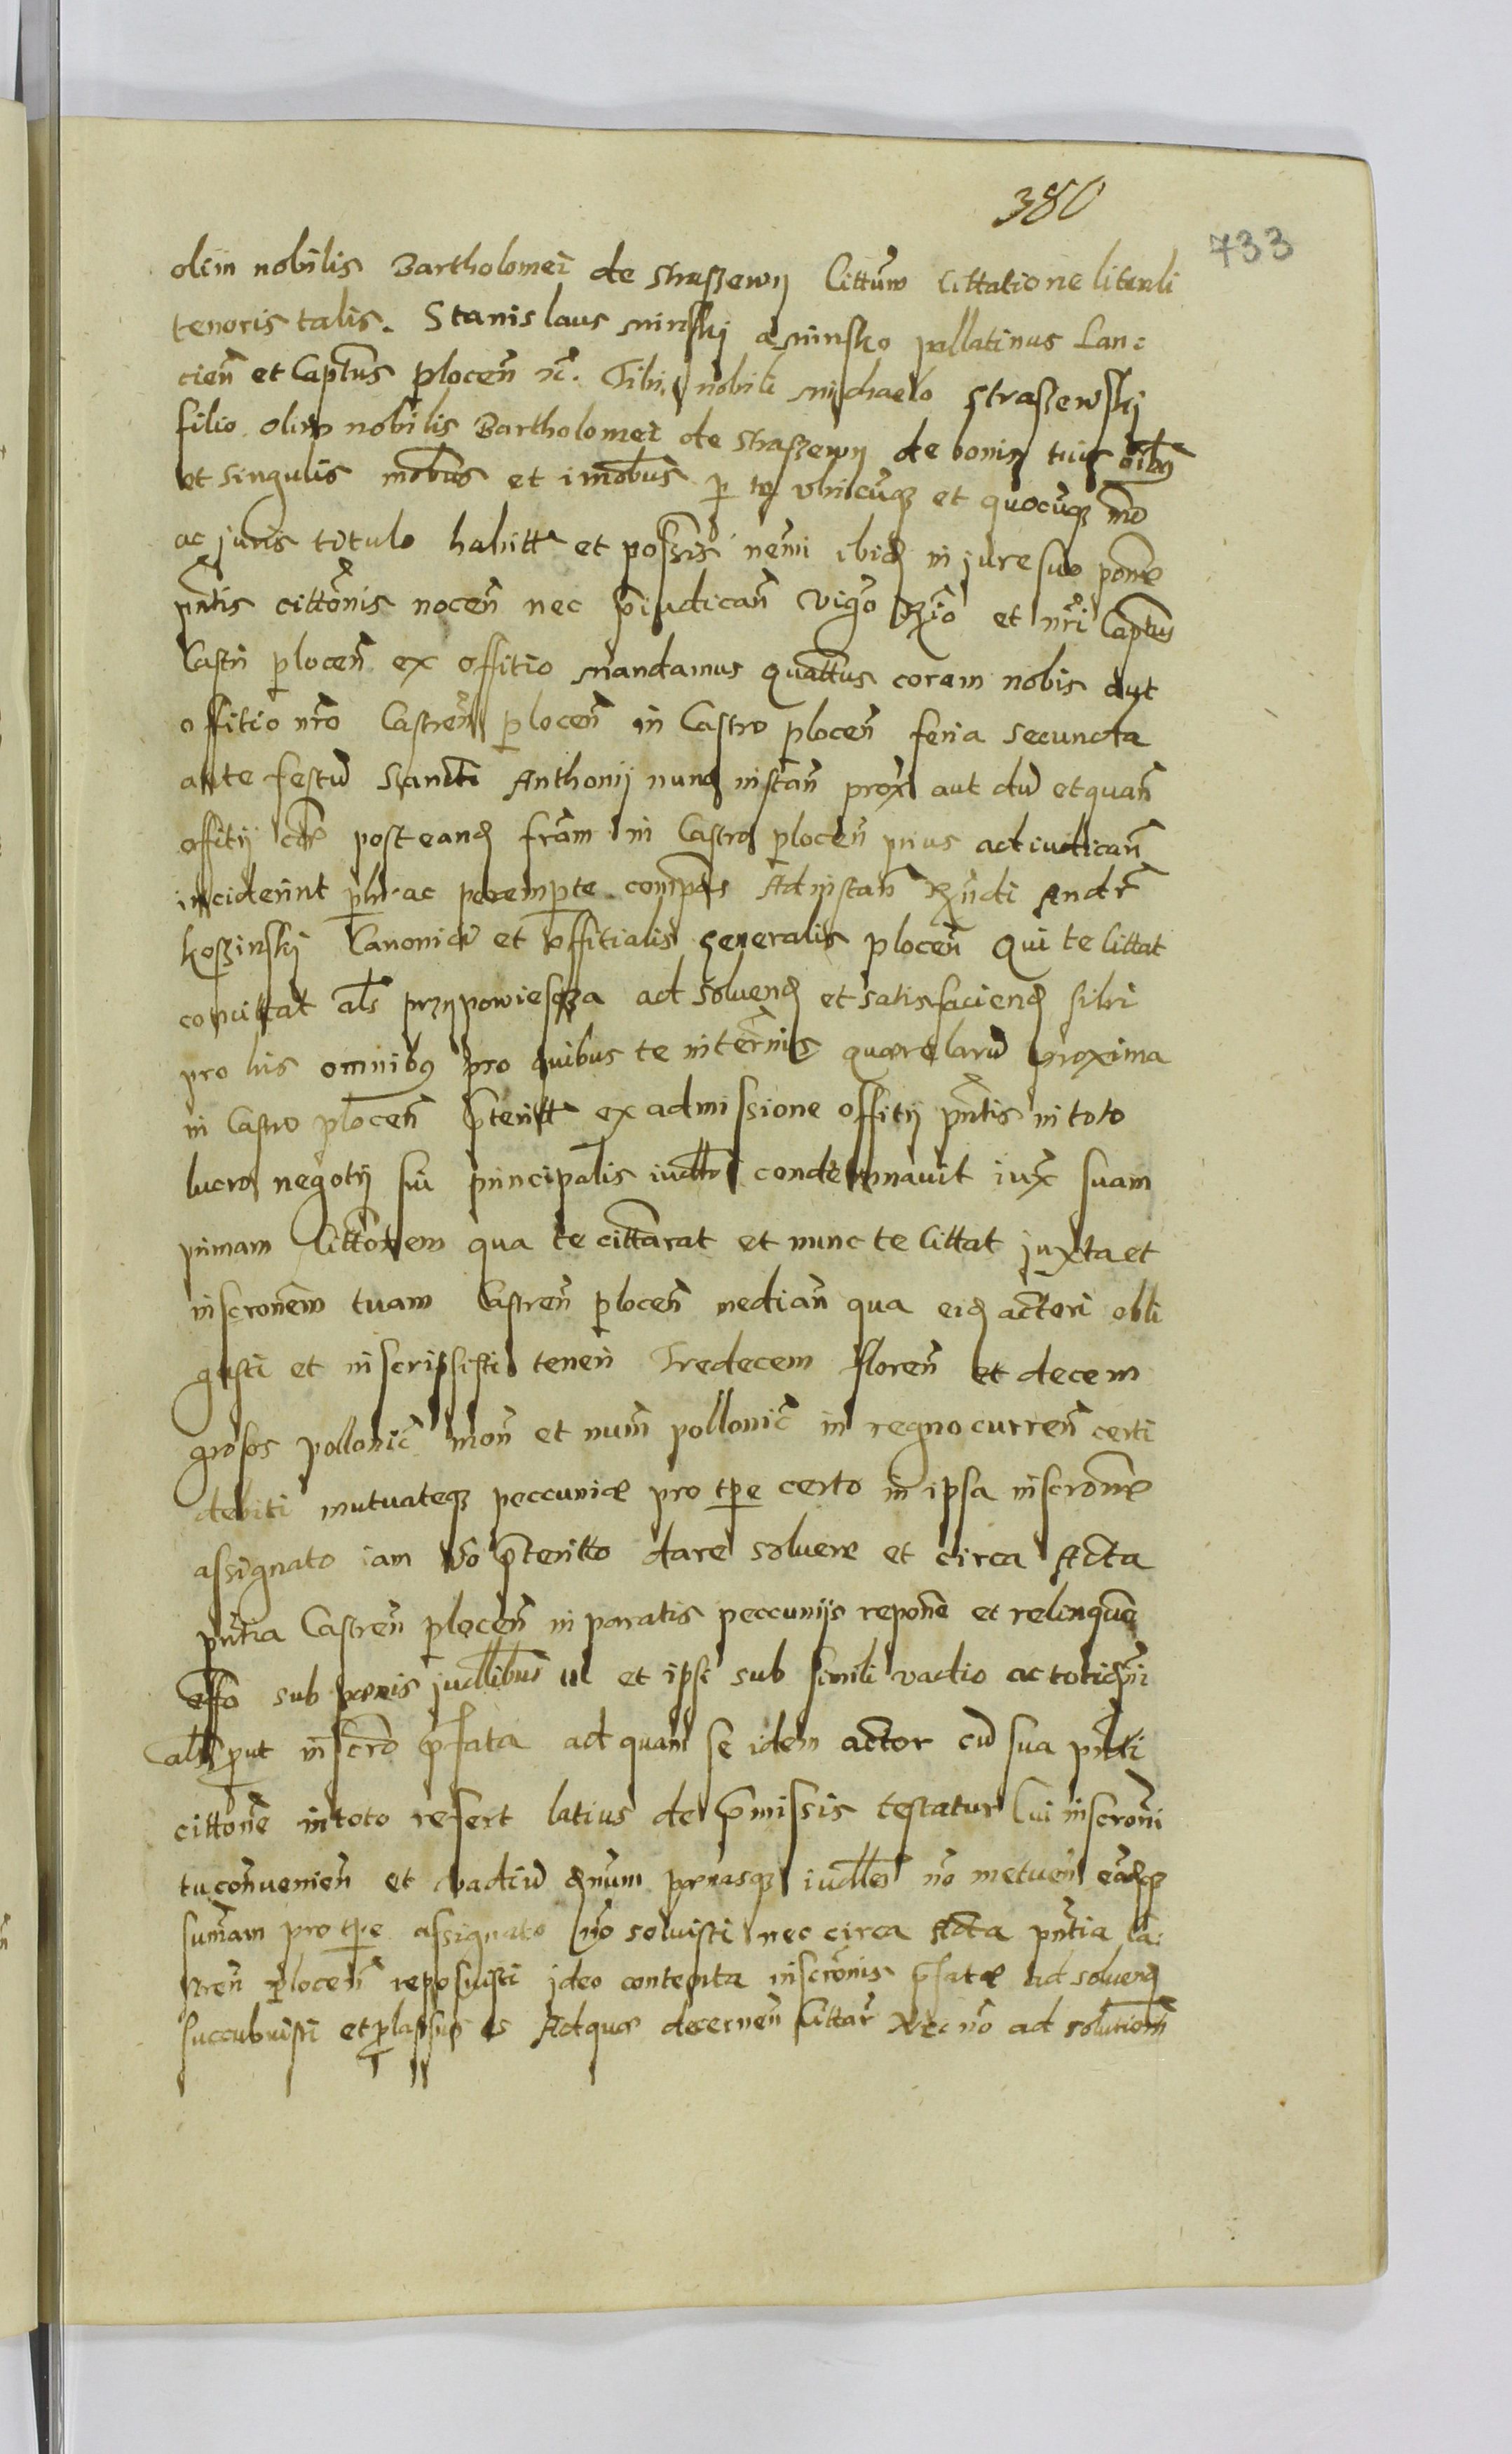 380
733
olim nobilis Bartholomei de Straszewy Cittum̃ Cittatione literali
tenoris talis. Stanislaus Minski a Minsko pallatinus Lan:
cicñ et Capt̃us plocen̄ &c̃. Tibi nobili Michaelo Straszewskj
filio olim nobilis Bartholomei de Straszewy de bonis tuis oĩbꝯ
et singulis mobus̃ et imobus̃ p te vbicũqꝫ et quocũqꝫ mõ
ac juris titulo habitt et possis̃ nemi ibid in jure suo pone
pñtis cittõnis nocen̄ nec p̃iudican̄ Vigõ R̃io et nr̃i Capt̃us
Castri plocen̄ ex offitio mandamus quatt̃us coram nobis aut
offitio nr̃o Castren̄ plocen̄ in Castro plocen̄ feria secunda
ante festũ Sancti Anthonij nunc instan̄ prox̃ aut dũ et quan̄
offitij cã post eand fr̃am in Castro plocen̄ prius adiudican̄
inciderint plr̃ ac perempte compas Ad instan̄ Rñdi Andr̃
koszinskj Canonici et offitialis generalis plocen̄ Qui te Cittat
concittat al̃s przypowiescza ad soluend et satisfaciend sibi
pro his omnibꝯ pro quibus te in ter̃nis quærelarũ proxima
in Castro plocen̄ p̃teritt ex admissione offitij pñtis in toto
lucro negotij sui principalis iudt̃r condemnauit iux̃ suam
primam Cittõnem qua te cittarat et nunc te Cittat juxta et
inscronem̃ tuam Castren̄ plocen̄ median̄ qua eid actori obli
gasti et inscripsisti teneri Tredecem floren̄ et decem
grosos pollonic̃ mon̄ et num̃ pollonic̃ in regno curren̄ certi
debiti mutuateqꝫ peccuniæ pro tp̃e certo in ipsa inscrõne
assignato iam v̊o p̃teritto dare soluere et circa Acta
pñtia Castren̄ plocen̄ in paratis peccunijs repone et relinque
sub pænis judl̃ibus et ipsi sub simili vadio ac totiqñi
al̃s put inscrõ p̃fata ad quam se idem actor cũ sua pñti
cittõne in toto refert latius de p̃missis testatur Cui inscrõni
tu conuenien̄ et vadiũ pænasqꝫ iudl̃es nõ metuen̄ eandqꝫ
sum̃am pro tp̃e assignato nõ soluisti nec circa Acta pñtia Ca:
stren̄ plocen̄ reposuisti ideo contenta inscrõnis p̃fatæ ad soluend
succubuisti et plapsus es Ad quæ decernen̄ Cittar̃ Nec nõ ad solutionem̃